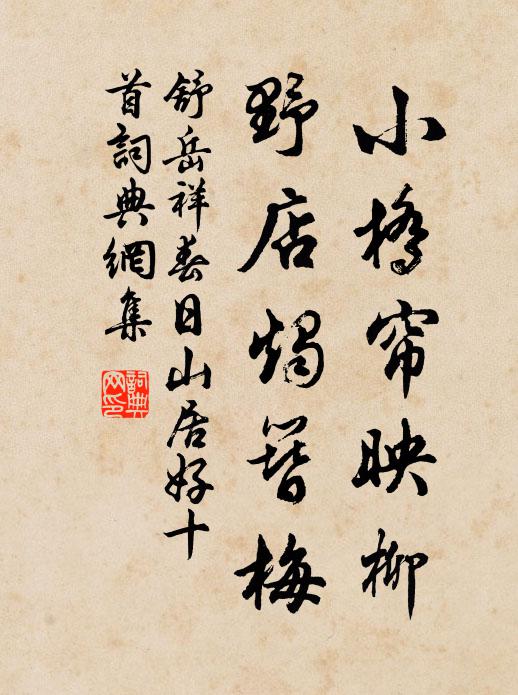 小橋帘映柳
野店燭簪梅
舒岳祥春日山居好十
首詞典網集
詞典
网印